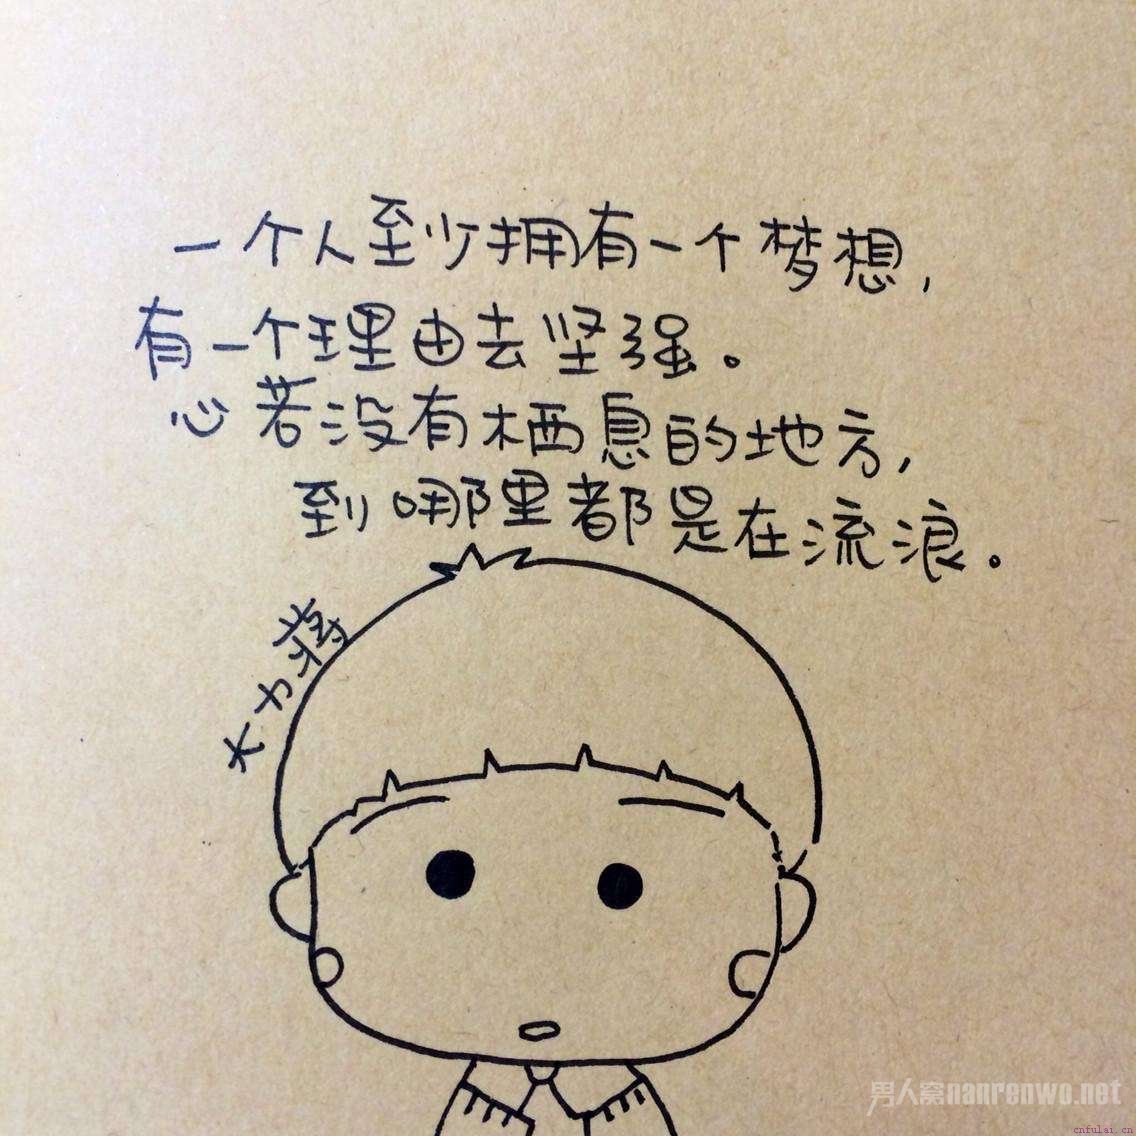 一个人至少拥有一个梦想，
有一个理由去坚强。
心若没有栖息的地方，
到哪里都是在流浪。
大力将
男人窝nanrenwo.net
cnfulai.cn